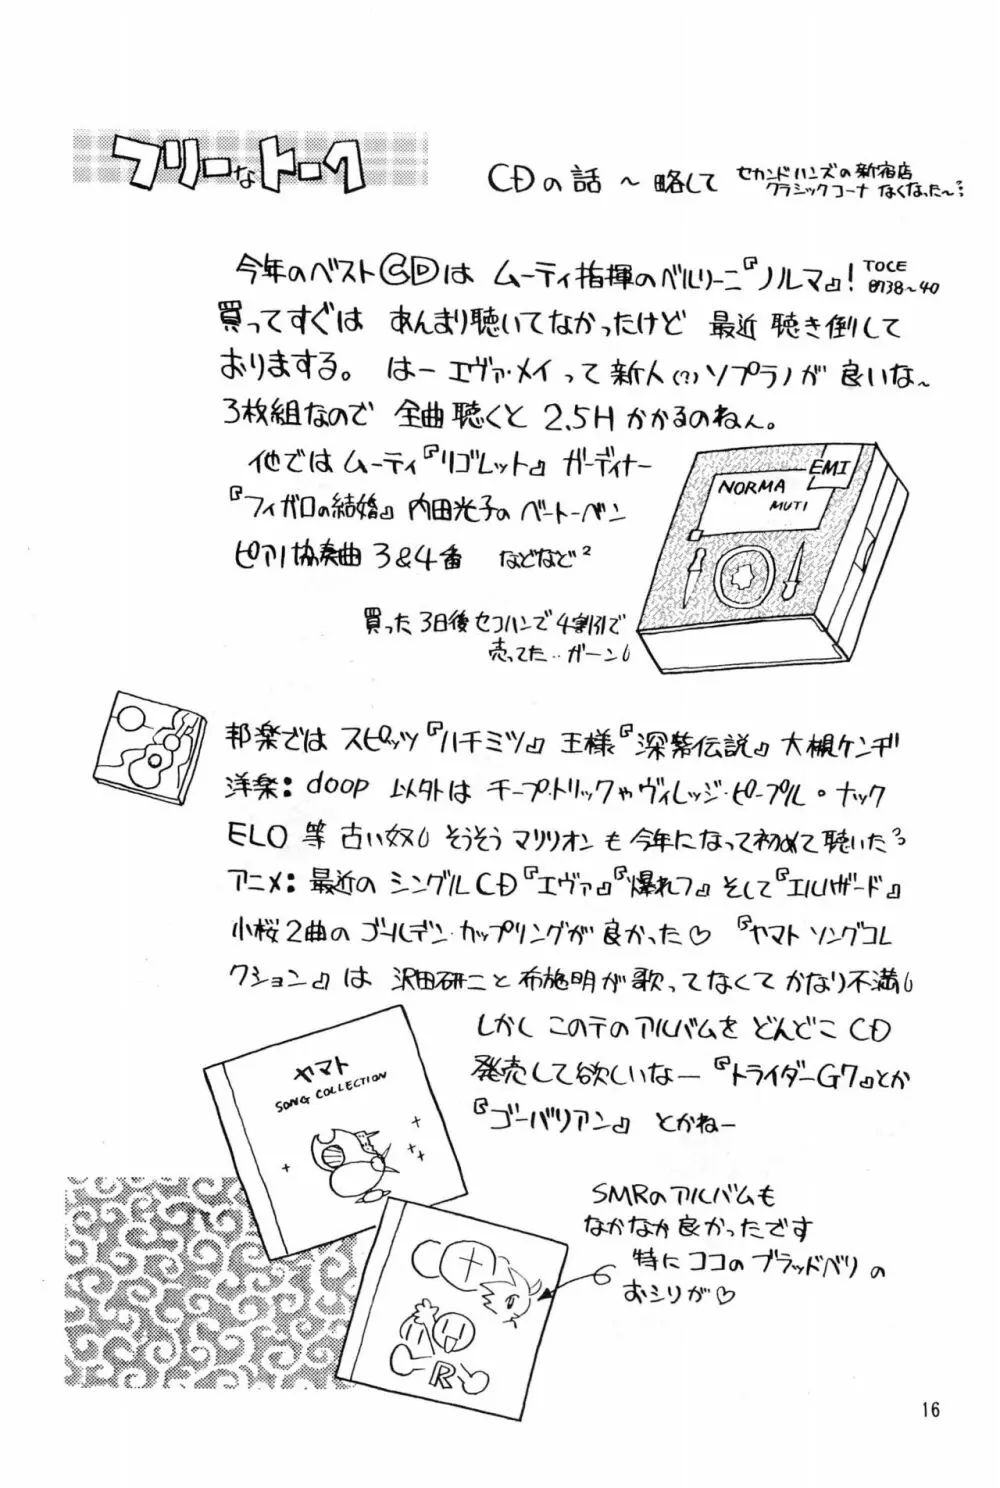 フリーなトーク
CDの話 ～ 略して
セカンドハンズの新宿店
クラシックコーナ なくなった～
今年のベストCDは ムーティ指揮のベルリーニ『ノルマ』!
TOCE
8738～40
買ってすぐは あんまり聴いてなかったけど 最近 聴き倒して
おりまする。 はー エヴァ・メイって 新人(?)ソプラノが 良いな～
3枚組なので 全曲聴くと 2.5Hかかるのねん。
他では ムーティ『リゴレット』 ガーディナー
『フィガロの結婚』 内田光子の ベートーベン
ピアノ協奏曲 3&4番 などなど²
EMI
NORMA
MUTI
買った 3日後 セコハンで 4割引で
売ってた‥ガーン
邦楽では スピッツ『ハチミツ』 王様『深紫伝説』 大槻ケンヂ
洋楽: doop 以外は チープ・トリックや ヴィレッジ・ピープル・ナック
ELO 等 古い奴 そうそう マリリオン も 今年になって初めて 聴いた
アニメ: 最近の シングルCD『エヴァ』『爆れフ』 そして『エルハザード』
小桜2曲の ゴールデン・カップリングが 良かった♡ 『ヤマト ソングコレ
クション』は 沢田研二と 布施明が 歌ってなくて かなり不満
しかし このテのアルバムを どんどこ CD
発売して欲しいなー 『トライダーG7』とか
『ゴーバリアン』 とかねー
ヤマト
SONG COLLECTION
SMRのアルバムも
なかなか良かったです
特に ココの ブラッドベリ の
おシリが♡
R
16